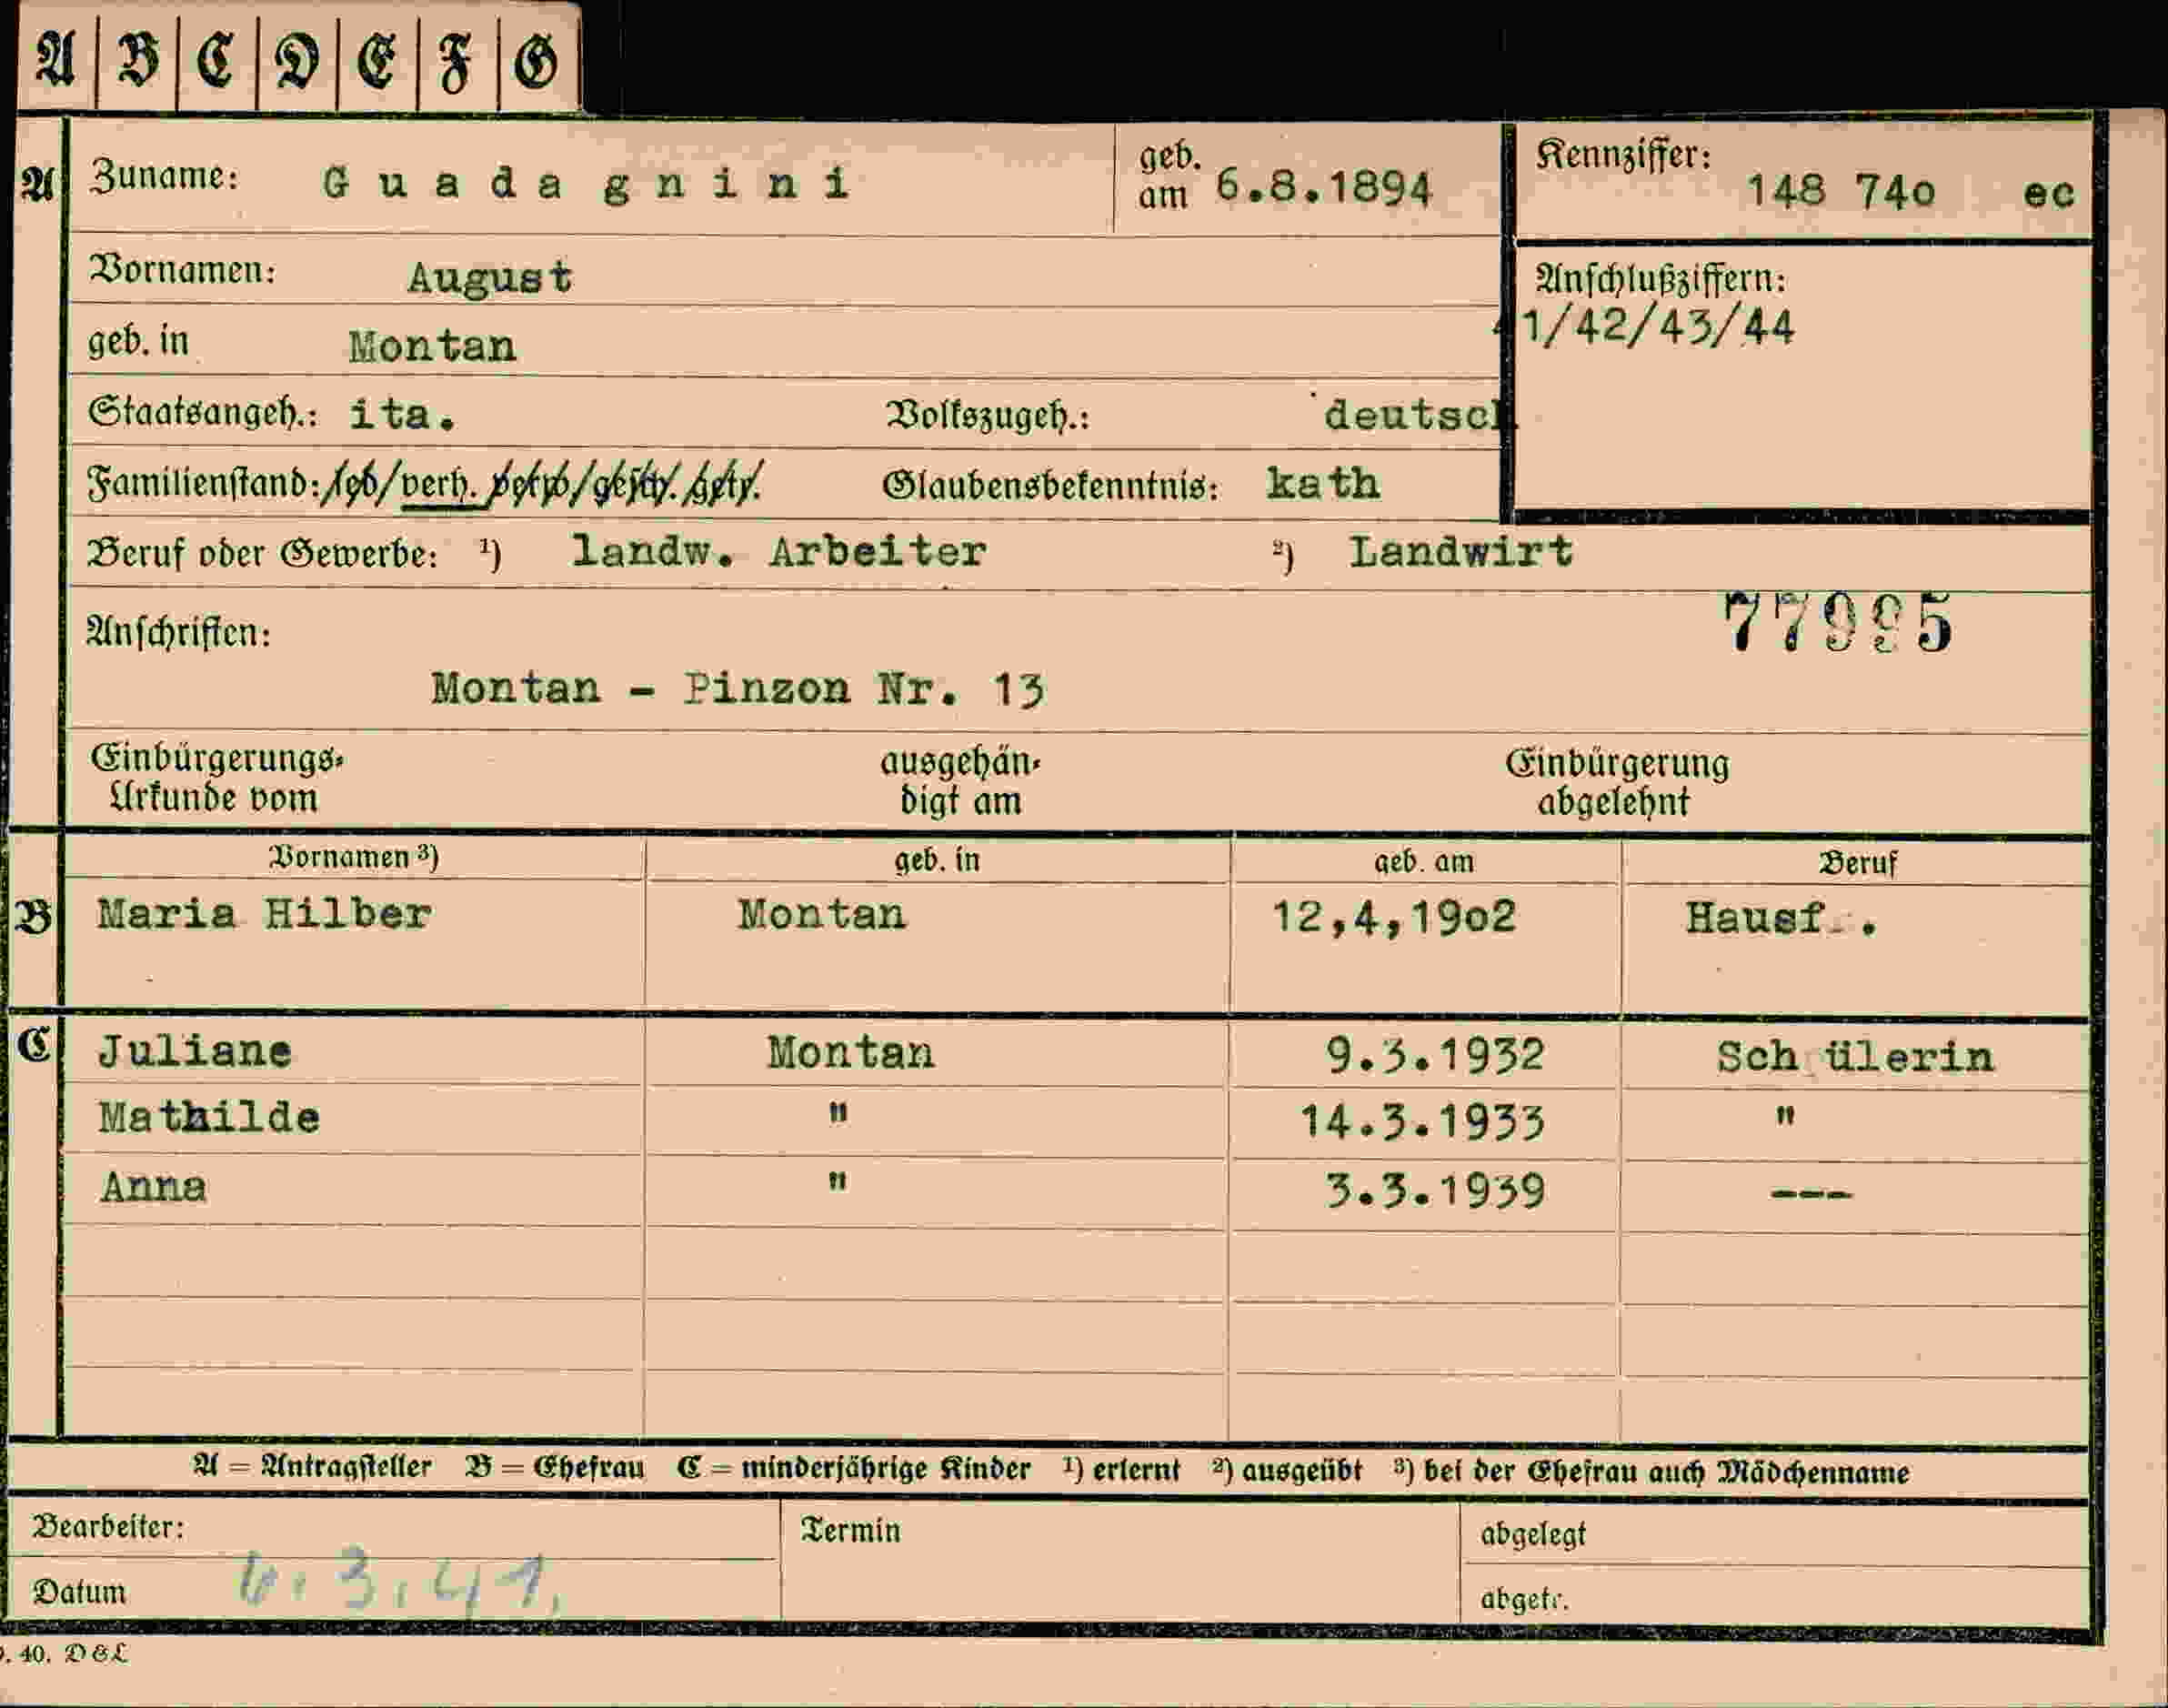 A B C D E F G
A Zuname: Guadagnini geb. am 6.8.1894 Kennziffer: 148 74o ec
Vornamen: August Anschlußziffern:
geb. in Montan 41/42/43/44
Staatsangeh.: ita. Volkszugeh.: deutsch
Familienstand: led/verh. verw/gesch. getr. Glaubensbekenntnis: kath
Beruf oder Gewerbe: ¹) landw. Arbeiter ²) Landwirt
77995
Anschriften:
Montan - Pinzon Nr. 13
Einbürgerungs- ausgehän- Einbürgerung
Urkunde vom digt am abgelehnt
Vornamen ³) geb. in geb. am Beruf
B Maria Hilber Montan 12,4,19o2 Hausf .
C Juliane Montan 9.3.1932 Sch ülerin
Mathilde " 14.3.1933 "
Anna " 3.3.1939 ---
A = Antragsteller B = Ehefrau C = minderjährige Kinder ¹) erlernt ²) ausgeübt ³) bei der Ehefrau auch Mädchenname
Bearbeiter: Termin abgelegt
Datum 6.3.41. abgetr.
. 40. D & L